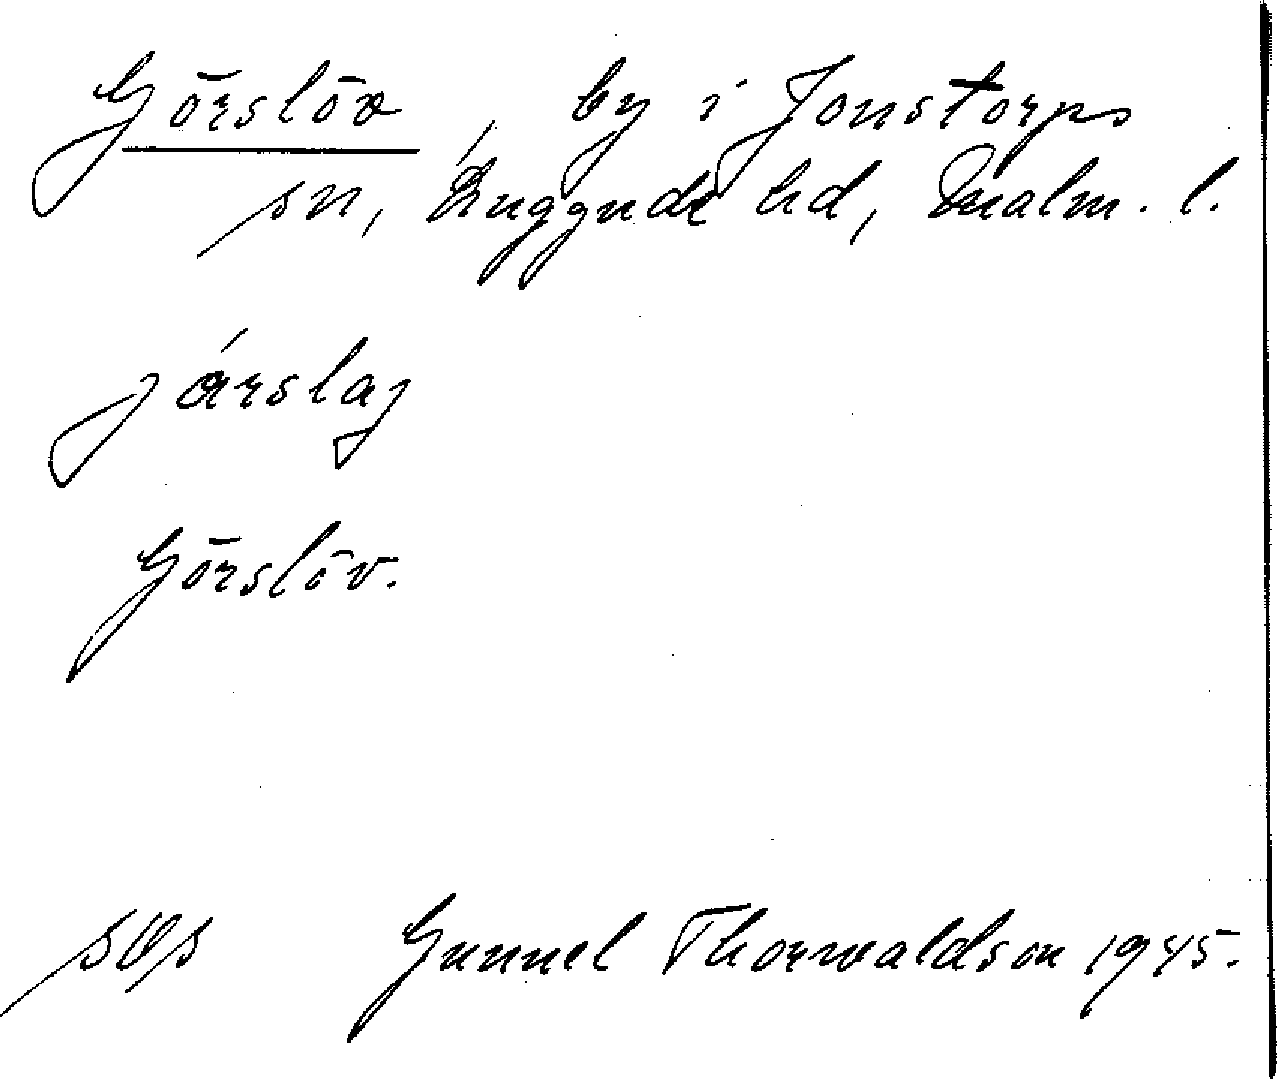 Görslöv, by i Jonstorps
sn, Luggude hd, Malm. l.
járslaj
Görslöv.
Gunnel Thorwaldson 1945.